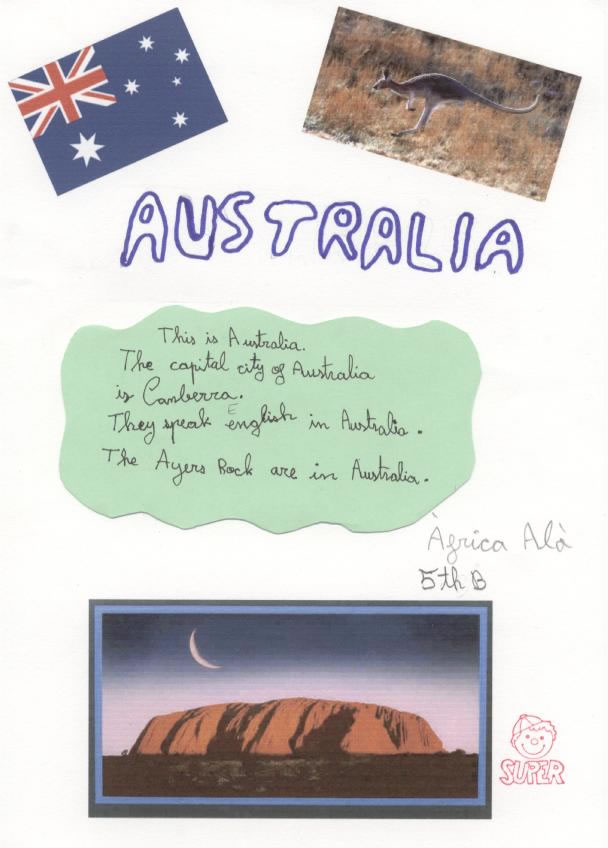 AUSTRALIA
This is Australia.
The capital city of Australia
is Canberra.
They speak english in Australia.
E
The Ayers Rock are in Australia.
Àfrica Alà
5th B
SUPER